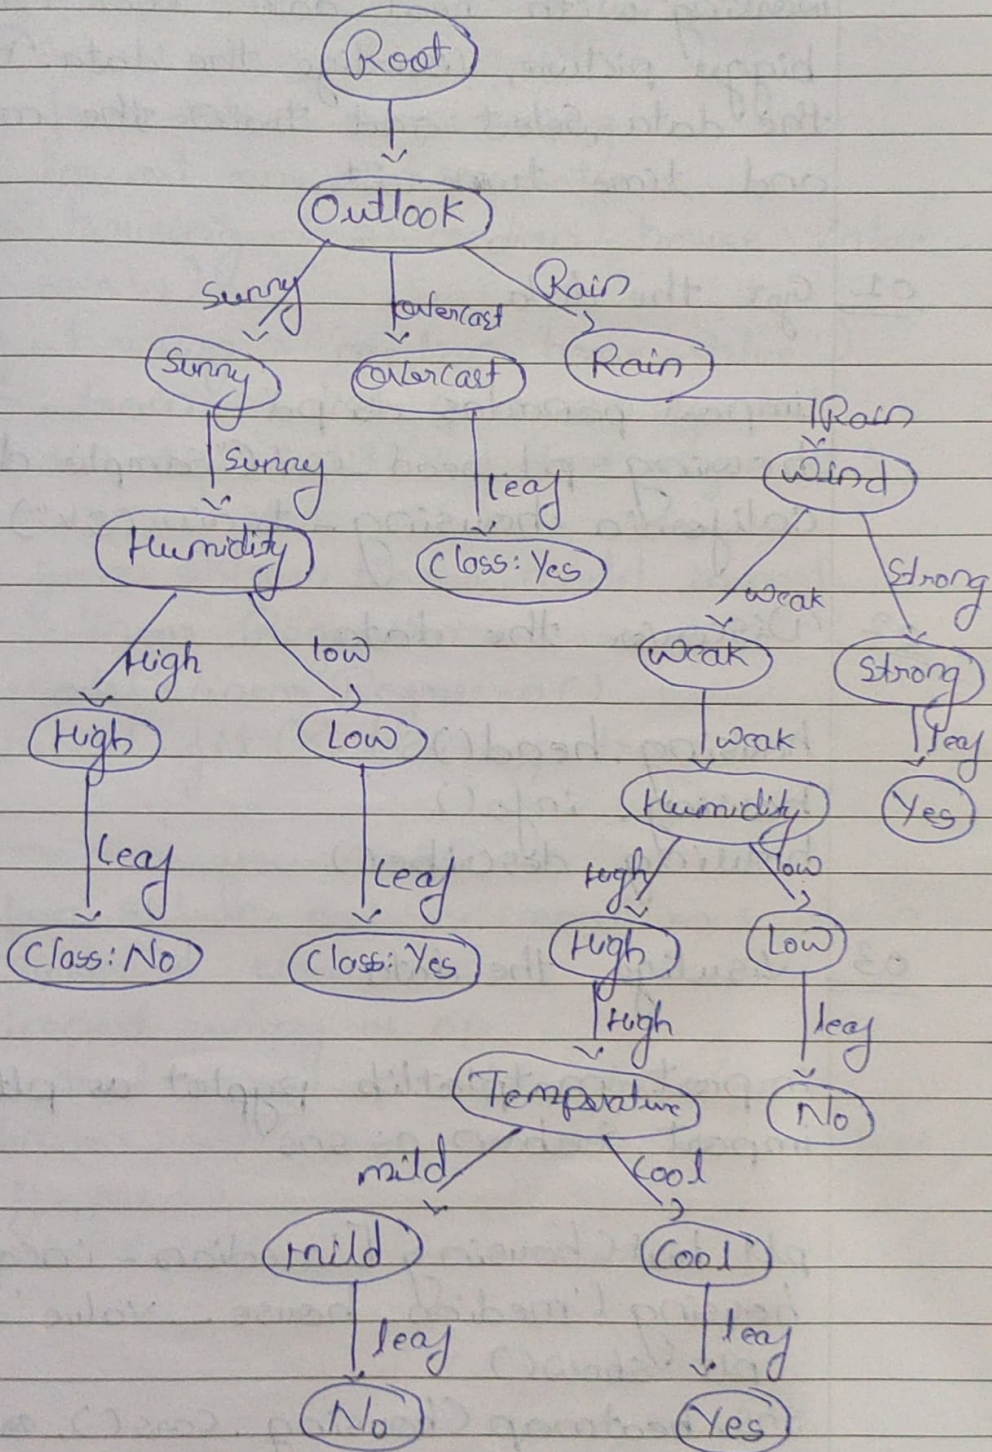 Root
Outlook
Sunny
overcast
Rain
Sunny
overcast
Rain
Rain
Sunny
leaf
Wind
Humidity
Class: Yes
weak
Strong
High
low
weak
Strong
High
Low
weak
leaf
Humidity
Yes
Leaf
Leaf
High
low
Class: No
Class: Yes
High
Low
High
leaf
Temperature
No
mild
cool
mild
cool
leaf
leaf
No
Yes